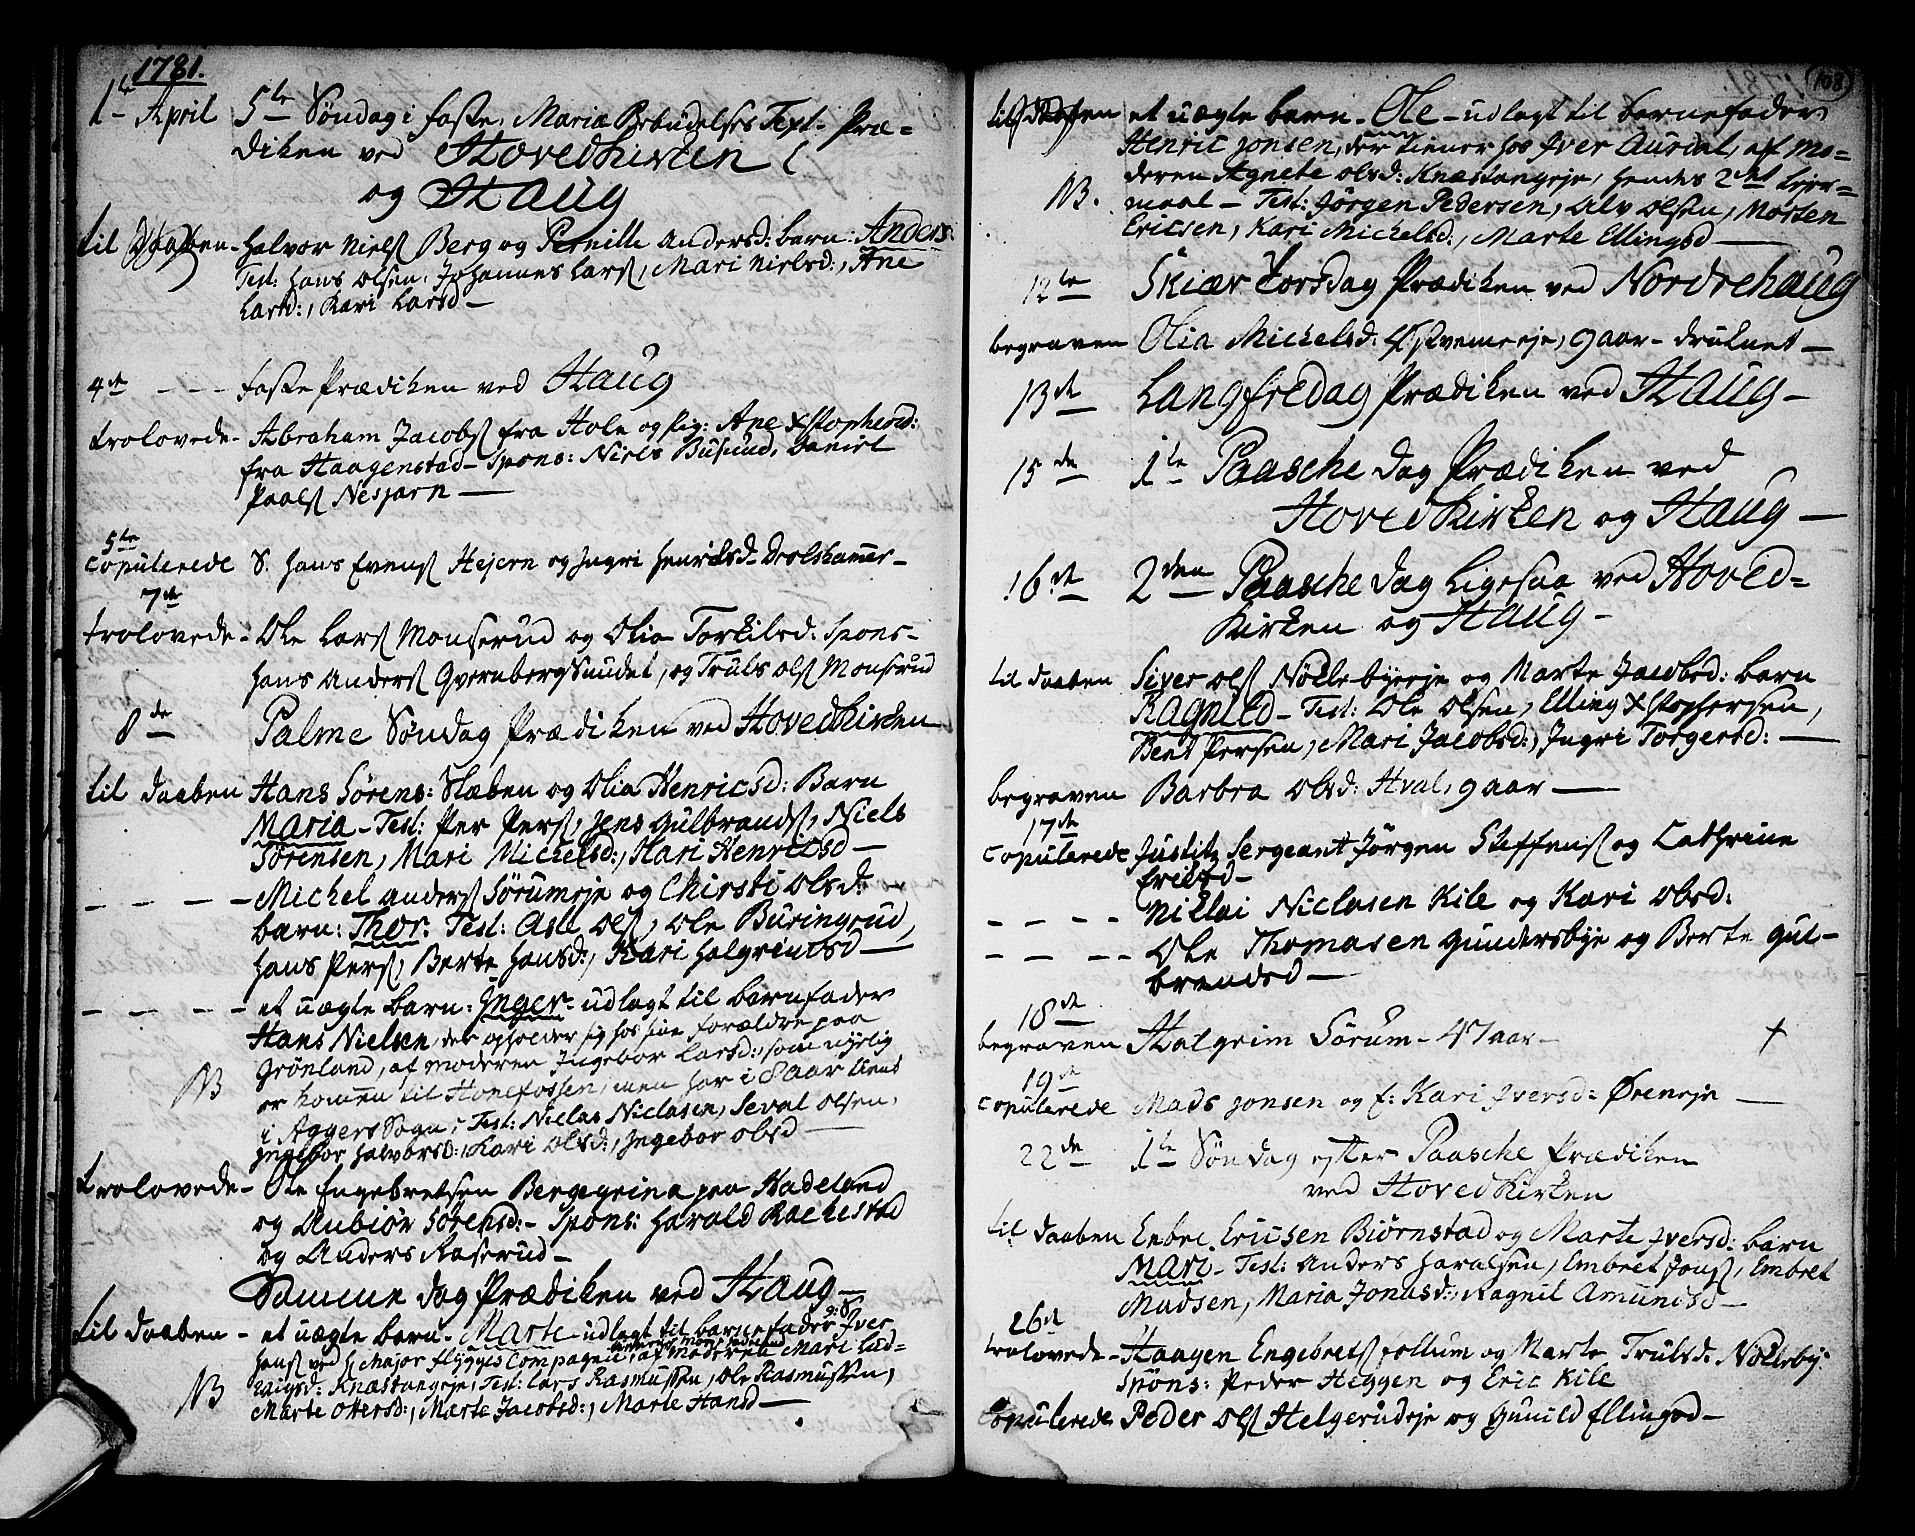 1781.
1te April 5te Søndag i faste, Mariæ Bebudelses Text. Præ-
diken ved Hovedkirken
og Haug
til Daaben - Halvor Niels Berg og Pernille Andersd: barn: Anders.
Test: Hans Olsen, Johannes Lars, Mari Nielsd:, Ane
Larsd:, Kari Larsd -
4de - - - faste Prædiken ved Haug
trolovede - Abraham Jacobs fra Hole og Pig: Ane Xstophersd:
fra Haagenstad - Spons: Niels Busund, Daniel
Paals Nesjarn -
5te
copulerede S. Hans Evens Hejern og Ingri Henrichsd Drolshammer -
7de
trolovede - Ole Lars Monserud og Olia Torkilsd. Spons -
Hans Anders Qvernbergsundet, og Truls Ols Monserud
8de Palme Søndag Prædiken ved Hovedkirken
til Daaben Hans Sørens: Slaben og Olia Henricsd: Barn
Maria - Test: Per Pers, Jens Gulbrands, Niels
Sørensen, Mari Michelsd:, Kari Henricsd -
- - - - Michel Anders Sørumeje og Chirsti Olsd: -
barn: Thor. Test: Asle Ols, Ole Buringrud,
Hans Pers, Berte Hansd:, Kari Halgrimsd -
- - - - et uægte barn: Inger - udlagt til barnefader
Hans Nielsen, der opholder sig hos sine forældre paa
Grønland, af moderen Ingebor Larsd:, som nylig
NB er komen til Hønefossen, men har i 8 aar tient
i Aggers Sogn, Test: Niclas Niclasen, Seval Olsen,
Ingebor Halvorsd:, Kari Olsd:, Ingebor Olsd -
trolovede - Ole Engebretsen Bergegrina paa Hadeland
og Aubiør Sørensd: - Spons: Harald Rachestad
og Anders Raserud -
Samme dag Prædiken ved Haug -
til Daaben - et uægte barn - Marte - udlagt til barnefader Iver
Hans ved H Major Flygges Compagnie, af moderen Mari Lud-
NB vigsd: Knæstangeje, Test: Lars Rasmussen, Ole Rasmussen,
Marte Ottersd:, Marte Jacobsd:, Marte Hansd -
108.
til Daaben et uægte barn - Ole - udlagt til barnefader
Henric Jonsen, der tiener hos Iver Aurdal, af mo-
NB. deren Agnete Olsd: Knæstangeje, hendes 2det Leier-
maal - Test: Jørgen Pedersen, Alv Olsen, Morten
Ericsen, Kari Michelsd:, Marte Ellingsd -
12te Skiær Torsdag Prædiken ved Nordrehaug
begraven Olia Michelsd: 9 aar - druknet -
13de Langfredag Prædiken ved Haug -
15de 1te Paasche dag Prædiken ved
Hovedkirken og Haug -
16de 2den Paasche dag Ligesaa ved Hoved-
kirken og Haug -
til Daaben Siver Ols Nøklebyeeje og Marte Jacobsd: barn
Ragnild - Test: Ole Olsen, Elling Xstophersen,
Bent Persen, Mari Jacobsd:, Ingri Torgersd: -
begraven Barbra Olsd: Hval, 9 aar -
17de
copulerede Justitz Sergeant Jørgen Steffens og Cathrine
Erilsd -
- - - - Niklai Niclasen Kile og Kari Olsd:
- - - - Ole Thomasen Gundersbye og Berte Gul-
brandsd -
18de
begraven Halgrim Sørum - 47 aar - †
19de
copulerede Mads Jonsen og E: Kari Iversd: Øreneje -
22de 1te Søndag efter Paasche Prædiken
ved Hovedkirken
til Daaben Enbre Ericsen Biørnstad og Marte Iversd: barn
Mari - Test: Anders Haralsen, Embret Jons, Embret
Madsen, Maria Jonasd:, Ragnil Amundsd -
26de
trolovede - Haagen Engebrets Follum og Marte Trulsd: Nøkleby
Spons: Peder Heggen og Eric Kile
Copulerede Peder Ols Helgerudeje og Gunild Ellingsd -